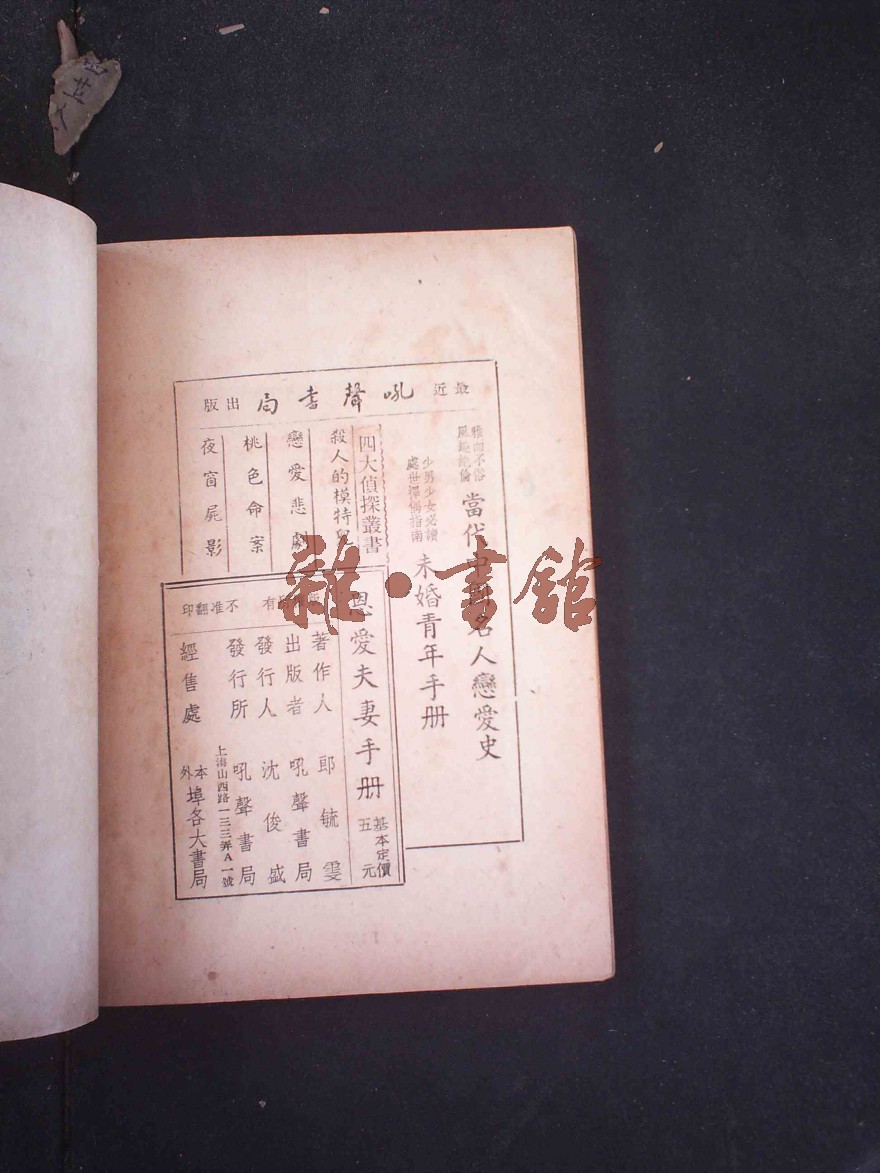 最近 吼聲書局 出版
雅而不俗
風趣絕倫
當代中外名人戀愛史
少男少女必讀
處世擇偶指南
未婚青年手册
四大偵探叢書
殺人的模特兒
戀愛悲劇
桃色命案
夜窗屍影
有 不准翻印
恩愛夫妻手册
基本定價
五元
著作人 郎毓雯
出版者 吼聲書局
發行人 沈俊盛
發行所 吼聲書局
上海山西路一三三弄A一號
經售處 本外埠各大書局
雜·書館